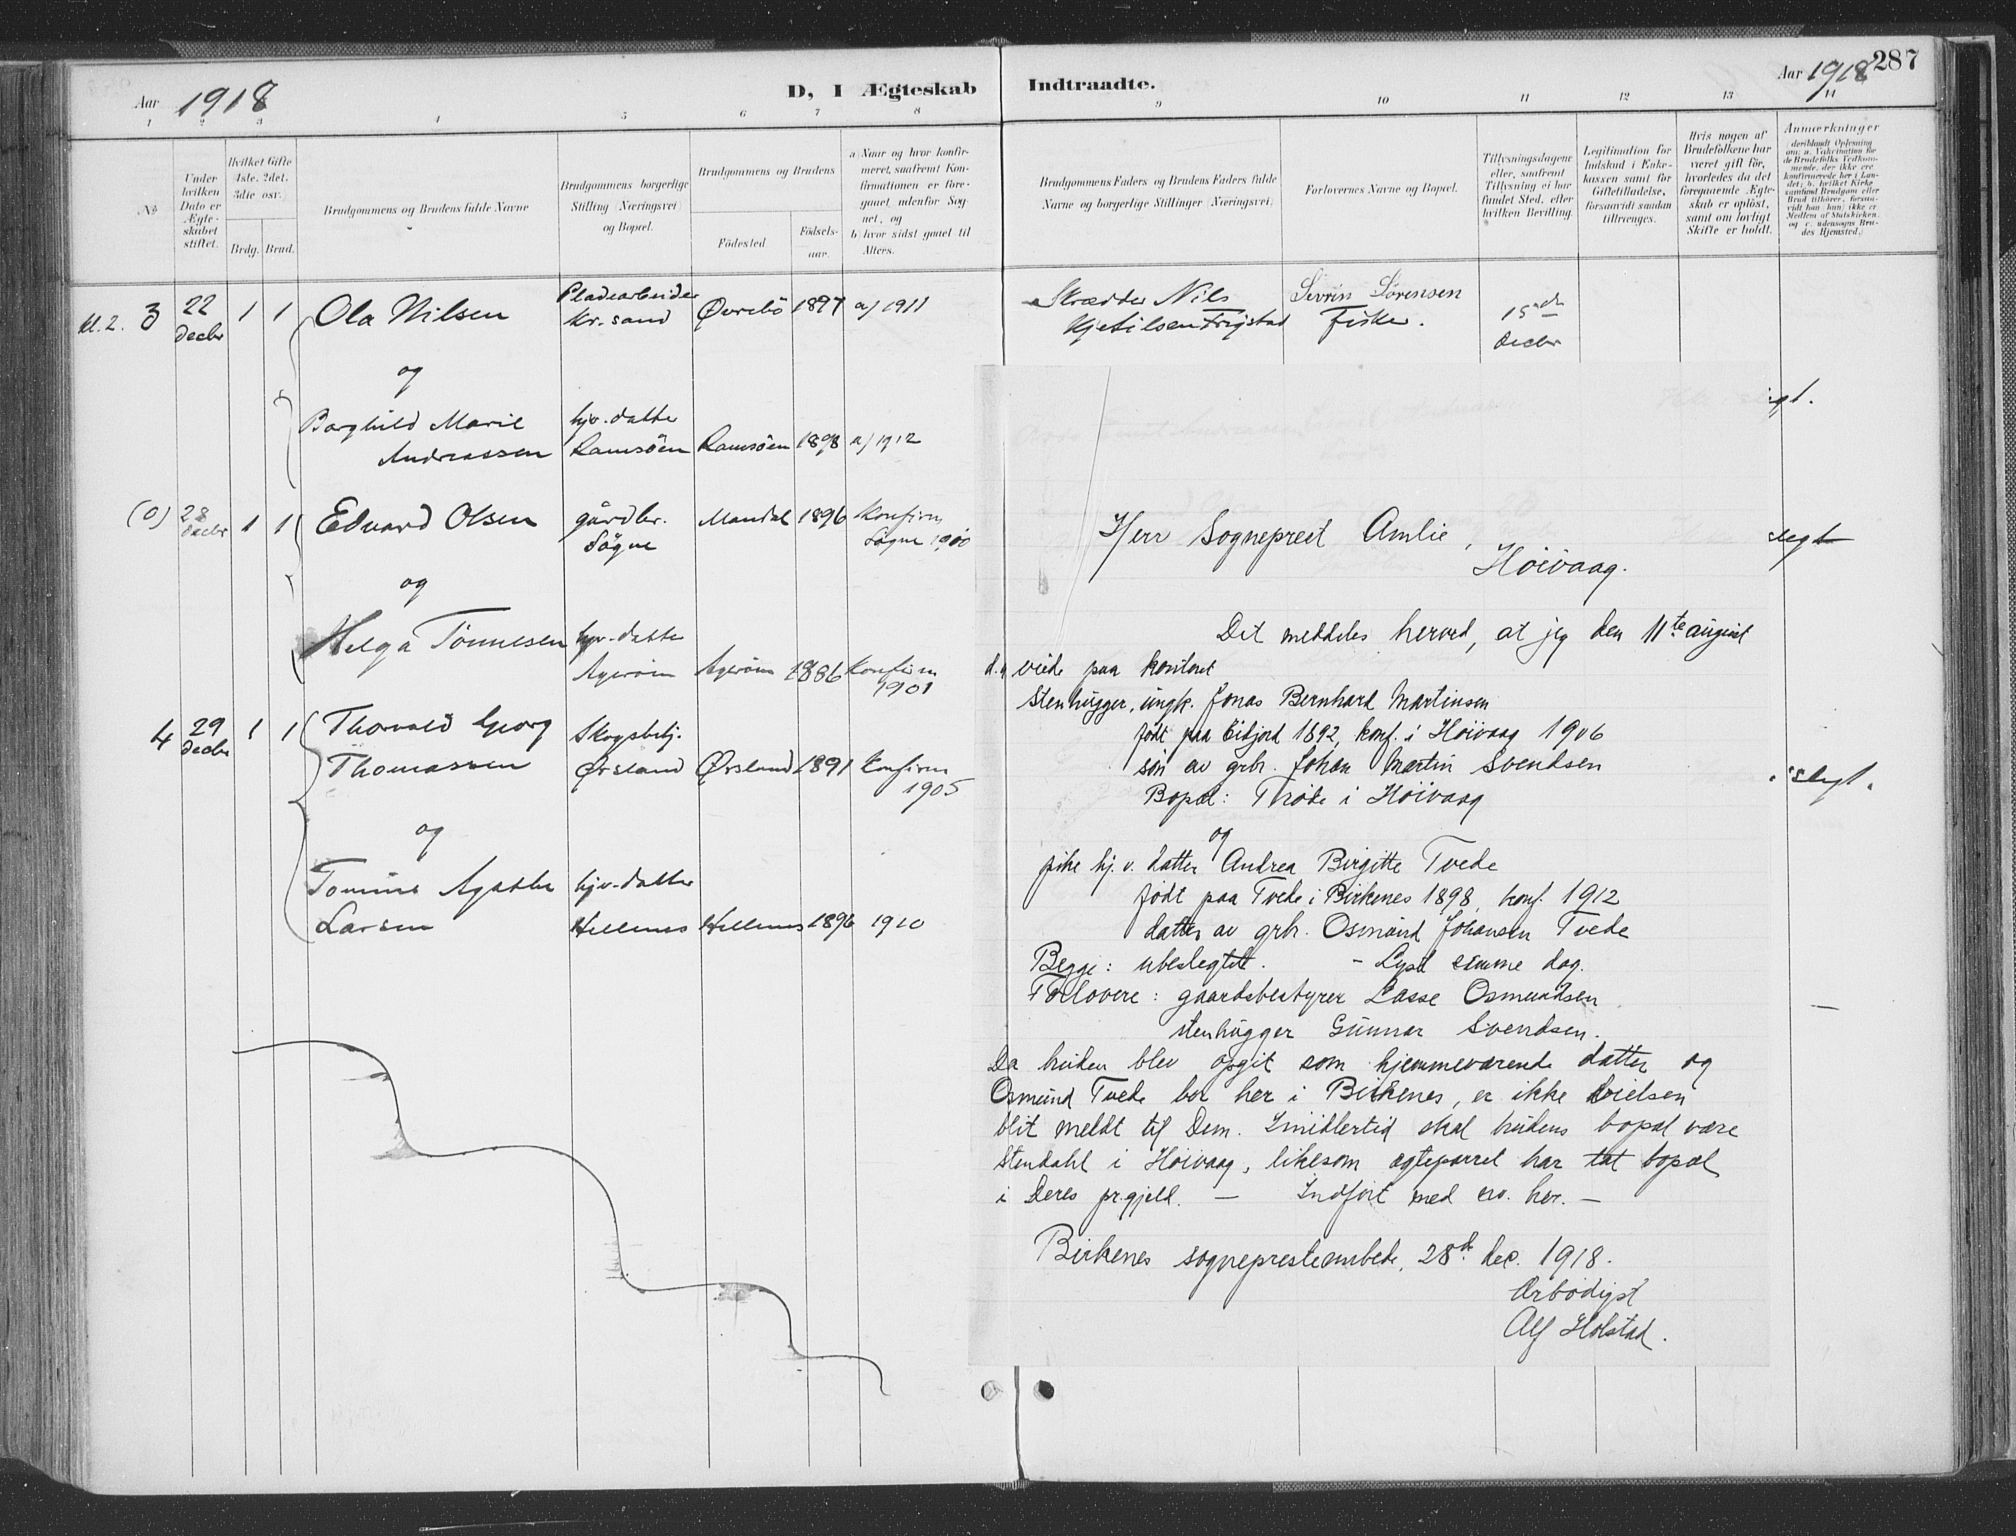 Aar 1918
D, I Ægteskab Indtraadte.
Aar 1918
287
1 2 3 4 5 6 7 8 9 10 11 12 13 14
No
Under hvilken Dato er Ægteskabet stiftet.
Hvilket Gifte 1ste, 2det, 3die osv.
Brdg. Brud.
Brudgommens og Brudens fulde Navne
Brudgommens borgerlige Stilling (Næringsvei) og Bopæl.
Brudgommens og Brudens
Fødested
Fødselsaar.
a Naar og hvor konfirmeret, saafremt Konfirmationen er foregaaet udenfor Sognet, og
b) hvor sidst gaaet til Alters.
Brudgommens Faders og Brudens Faders fulde Navne og borgerlige Stillinger (Næringsvei).
Forlovernes Navne og Bopæl.
Tillysningsdagene eller, saafremt Tillysning ei har fundet Sted, efter hvilken Bevilling.
Legitimation for Indskud i Enkekassen samt for Giftetilladelse, forsaavidt saadan tiltrenges.
Hvis nogen af Brudefolkene har været gift før, hvorledes da det foregaaende Ægteskab er opløst, samt om lovligt Skifte er holdt.
Anmerkninger
kl. 2. 3 22 decbr 1 1 Ola Nilsen Pladearbeider Kr.sand Øvrebö 1897 a) 1911 Skrædder Nils Kjetilsen Frigstad Sivrin Sörensen Fisker. 15de decbr
og
Borghild Marie Andreassen hjv. datter Ramsöen Ramsöen 1898 a) 1912
(0) 28 decbr 1 1 Edvard Olsen gårdbr. Sögne Mandal 1896 Konfirm Sögne 1910
slegt
og
Helga Tönnesen hjv. datter Ageröen Ageröen 1886 Konfirm 1901
4 29 decbr 1 1 Thorvald Georg Thomassen Skogsbetj. Ørsland Ørsland 1891 Konfirm 1905
slegt.
og
Tomine Agathe Larsen hjv. datter Hellenes Hellenes 1896 1910
Herr Sogneprest Amlie,
Höivaag.
Det meddeles herved, at jeg den 11te august
d.a. viede paa kontoret
Stenhugger, ungk. Jonas Bernhard Martinsen
født paa Eidjord 1892, konf. i Höivaag 1906
søn av grbr. Johan Martin Svendsen
Bopæl: Trøde i Höivaag
og
pike hj. v. datter Andrea Birgitte Tvede
født paa Tvede i Birkenes 1898, konf. 1912
datter av grbr. Osmund Johansen Tvede
Begge: ubeslegtet. – Lyst samme dag.
Forlovere: gaardsbestyrer Lasse Osmundsen
stenhugger Gunnar Svendsen.
Da bruden blev opgit som hjemmeværende datter og
Osmund Tvede bor her i Birkenes, er ikke vielsen
blit meldt til Dem. Imidlertid skal brudens bopæl være
Stendahl i Höivaag, likesom ægteparret har tat bopæl
i Deres pr.gjeld. – Indført med nr. her. –
Birkenes sogneprestembede, 28de dec. 1918.
Ærbødigst
Alf Holstad.